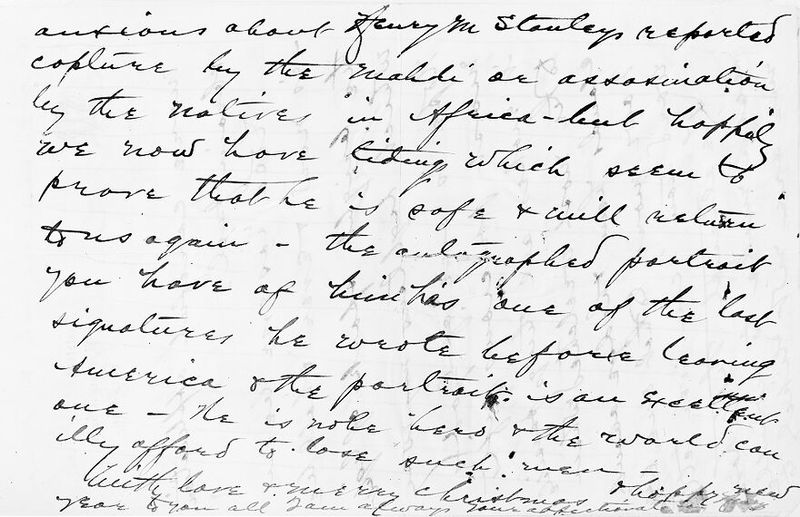 anxious about Henry M Stanleys reported
capture by the Mahdi or assasination
by the natives in Africa - but happily
we now have tidings which seem to
prove that he is safe & will return
to us again - the autographed portrait
you have of him is one of the last
signatures he wrote before leaving
America & the portrait is an excellent
one - He is noble hero & the world can
illy afford to lose such men -
With love & merry Christmas & happy new
year to you all I am always your affectionate